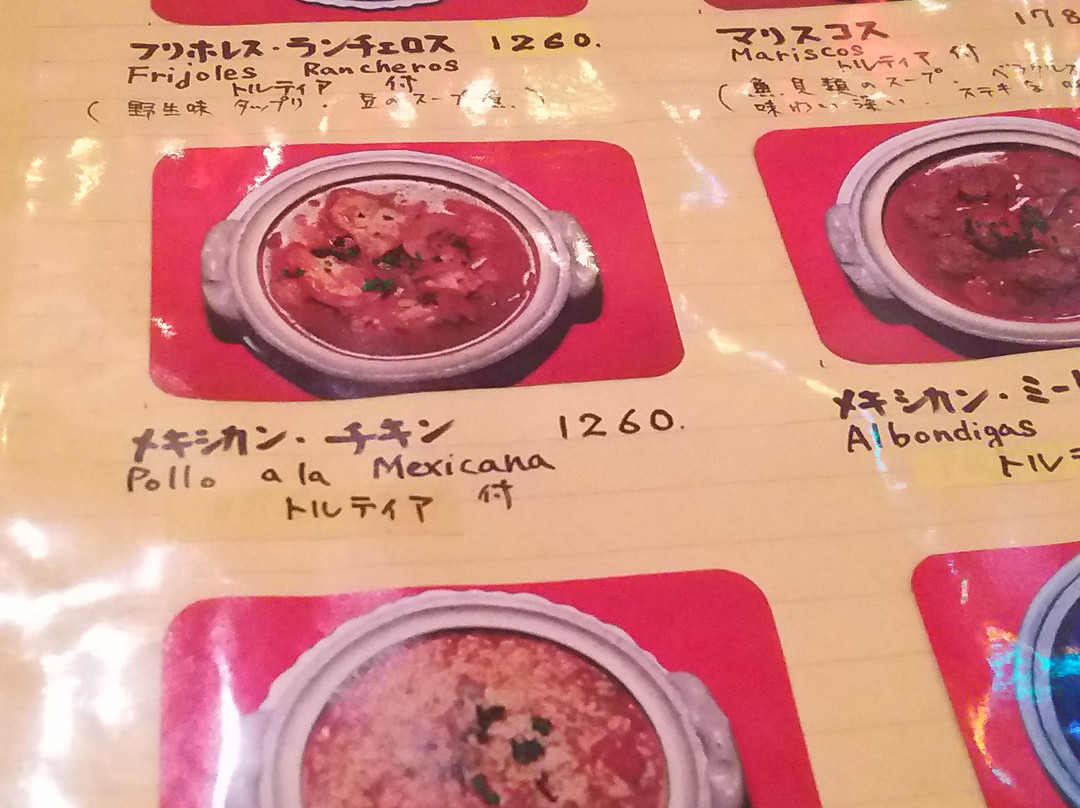 フリホレス・ランチェロス 1260.
Frijoles Rancheros
トルティア 付
( 野生味 タップリ . 豆のスープ
マリスコス 178
Mariscos
トルティア 付
( 魚.貝類のスープ.
味わい深い..
メキシカン・チキン 1260.
Pollo a la Mexicana
トルティア 付
メキシカン・ミー
Albondigas
トルテ